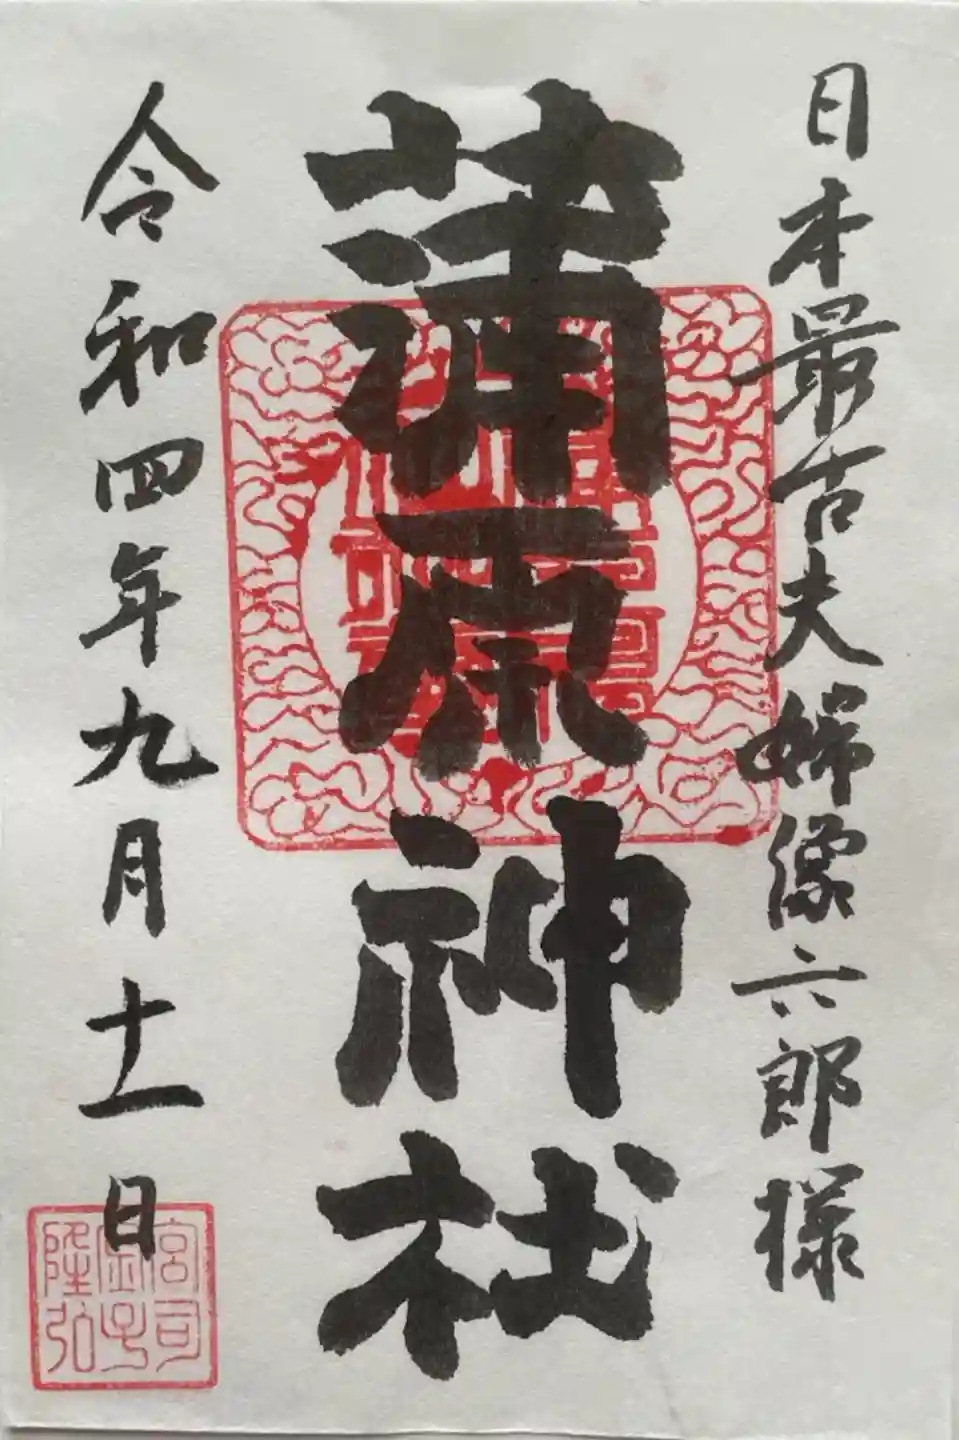 日本最古夫婦像六郎様
蒲原神社
令和四年九月十一日
宮司
金子
隆弘